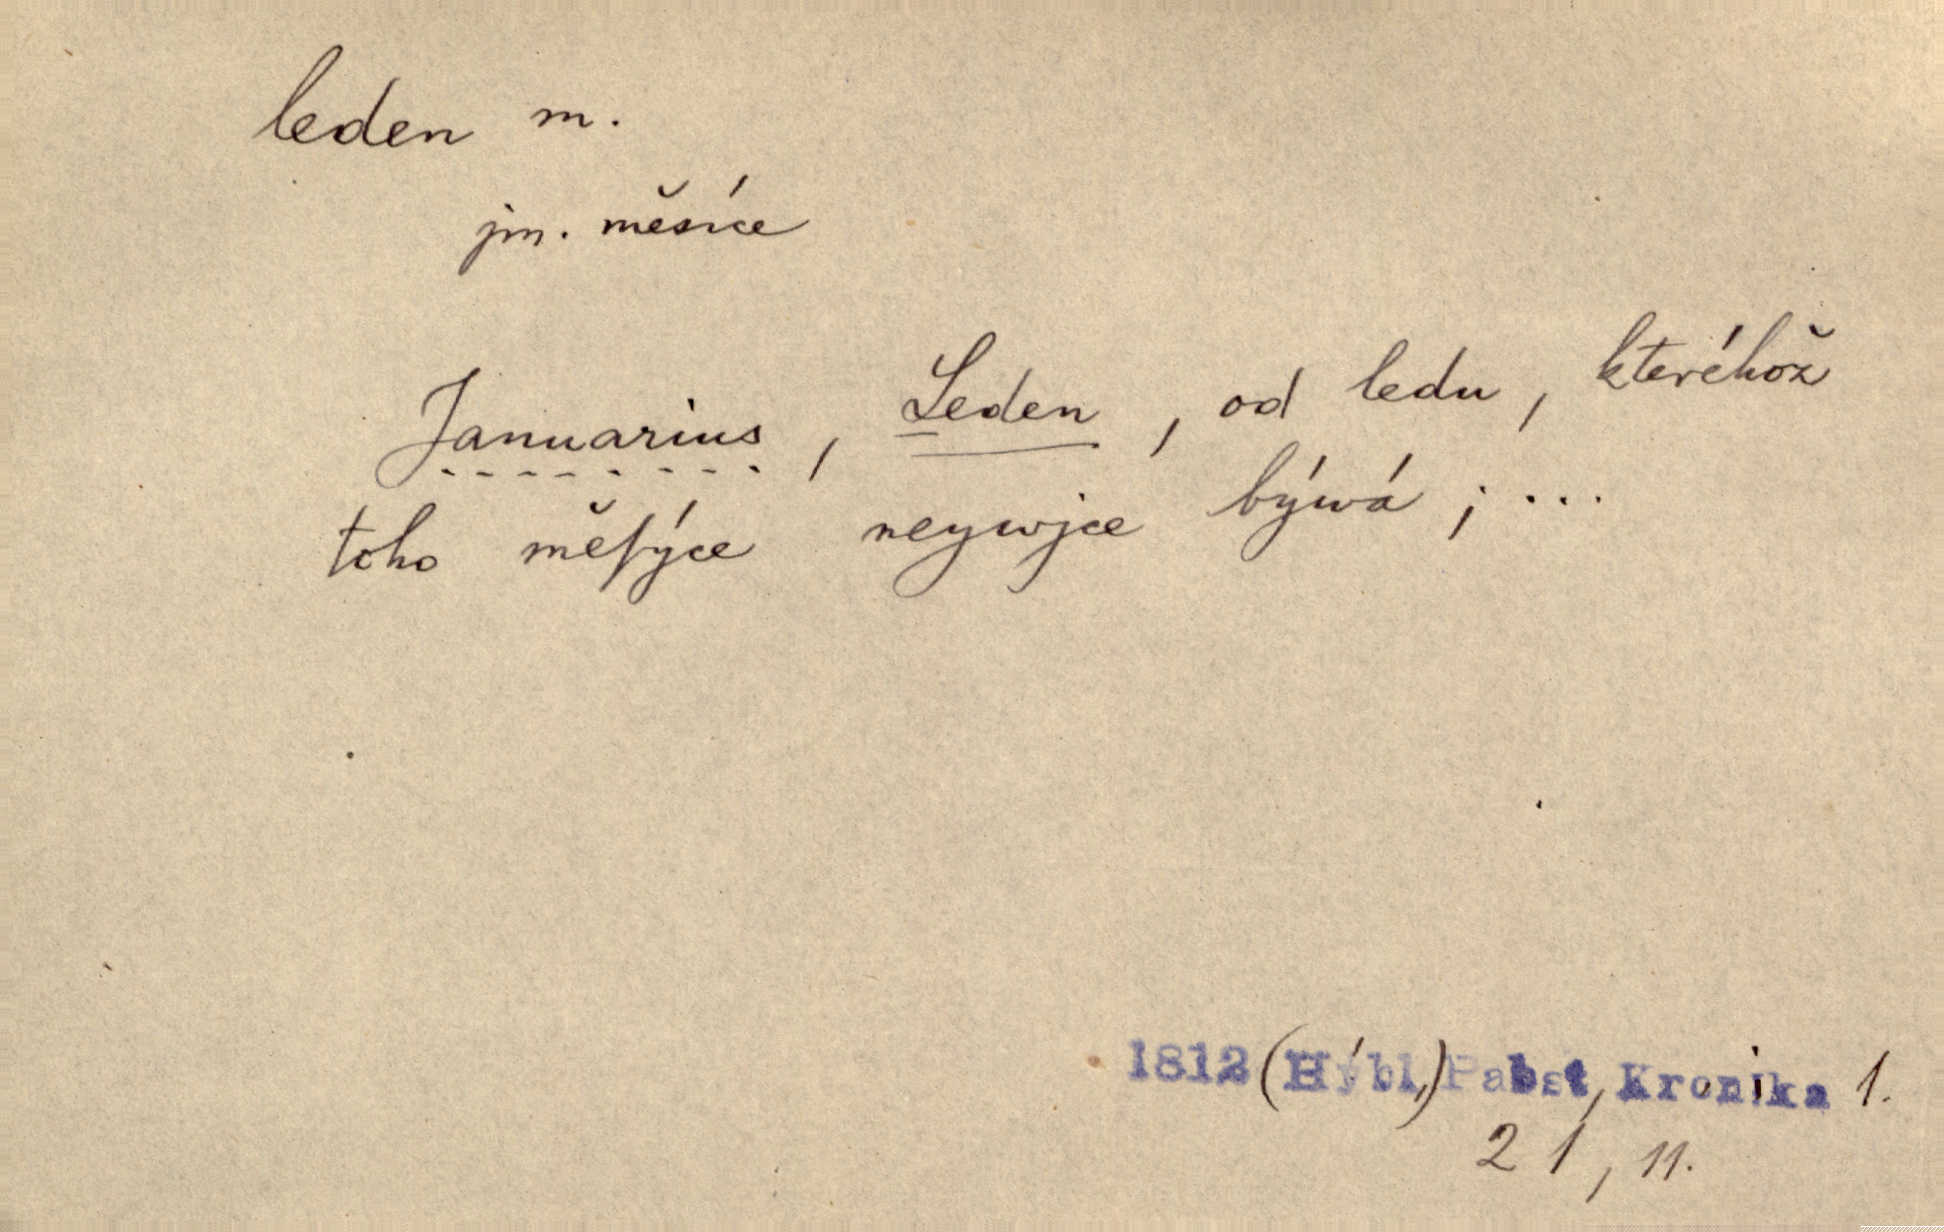 leden m.
jm. měsíce
Januarius, Leden, od ledu, kteréhož
toho měſýce neywjce býwá; ...
1812 (Hýbl,) Pabst, Kronika 1.
21, 11.